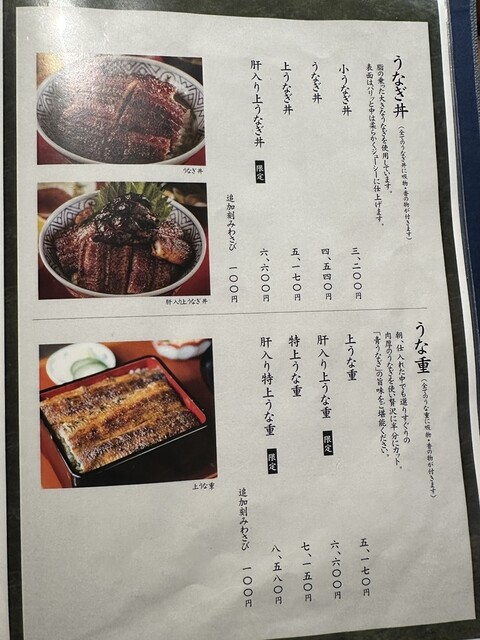 うなぎ丼
(全てのうなぎ丼に吸物・香の物が付きます)
脂の乗った大きなうなぎを使用しています。
表面はパリッと中は柔らかくジューシーに仕上げます。
小うなぎ丼 三、二〇〇円
うなぎ丼 四、五四〇円
上うなぎ丼 五、一七〇円
肝入り上うなぎ丼 限定 六、六〇〇円
追加刻みわさび 一〇〇円
うなぎ丼
肝入り上うなぎ丼
うな重
(全てのうな重に吸物・香の物が付きます)
朝、仕入れた中でも選りすぐりの
肉厚のうなぎを使い贅沢に半分にカット。
「青うなぎ」の旨味をご堪能ください。
上うな重 五、一七〇円
肝入り上うな重 限定 六、六〇〇円
特上うな重 七、一五〇円
肝入り特上うな重 限定 八、五八〇円
追加刻みわさび 一〇〇円
上うな重